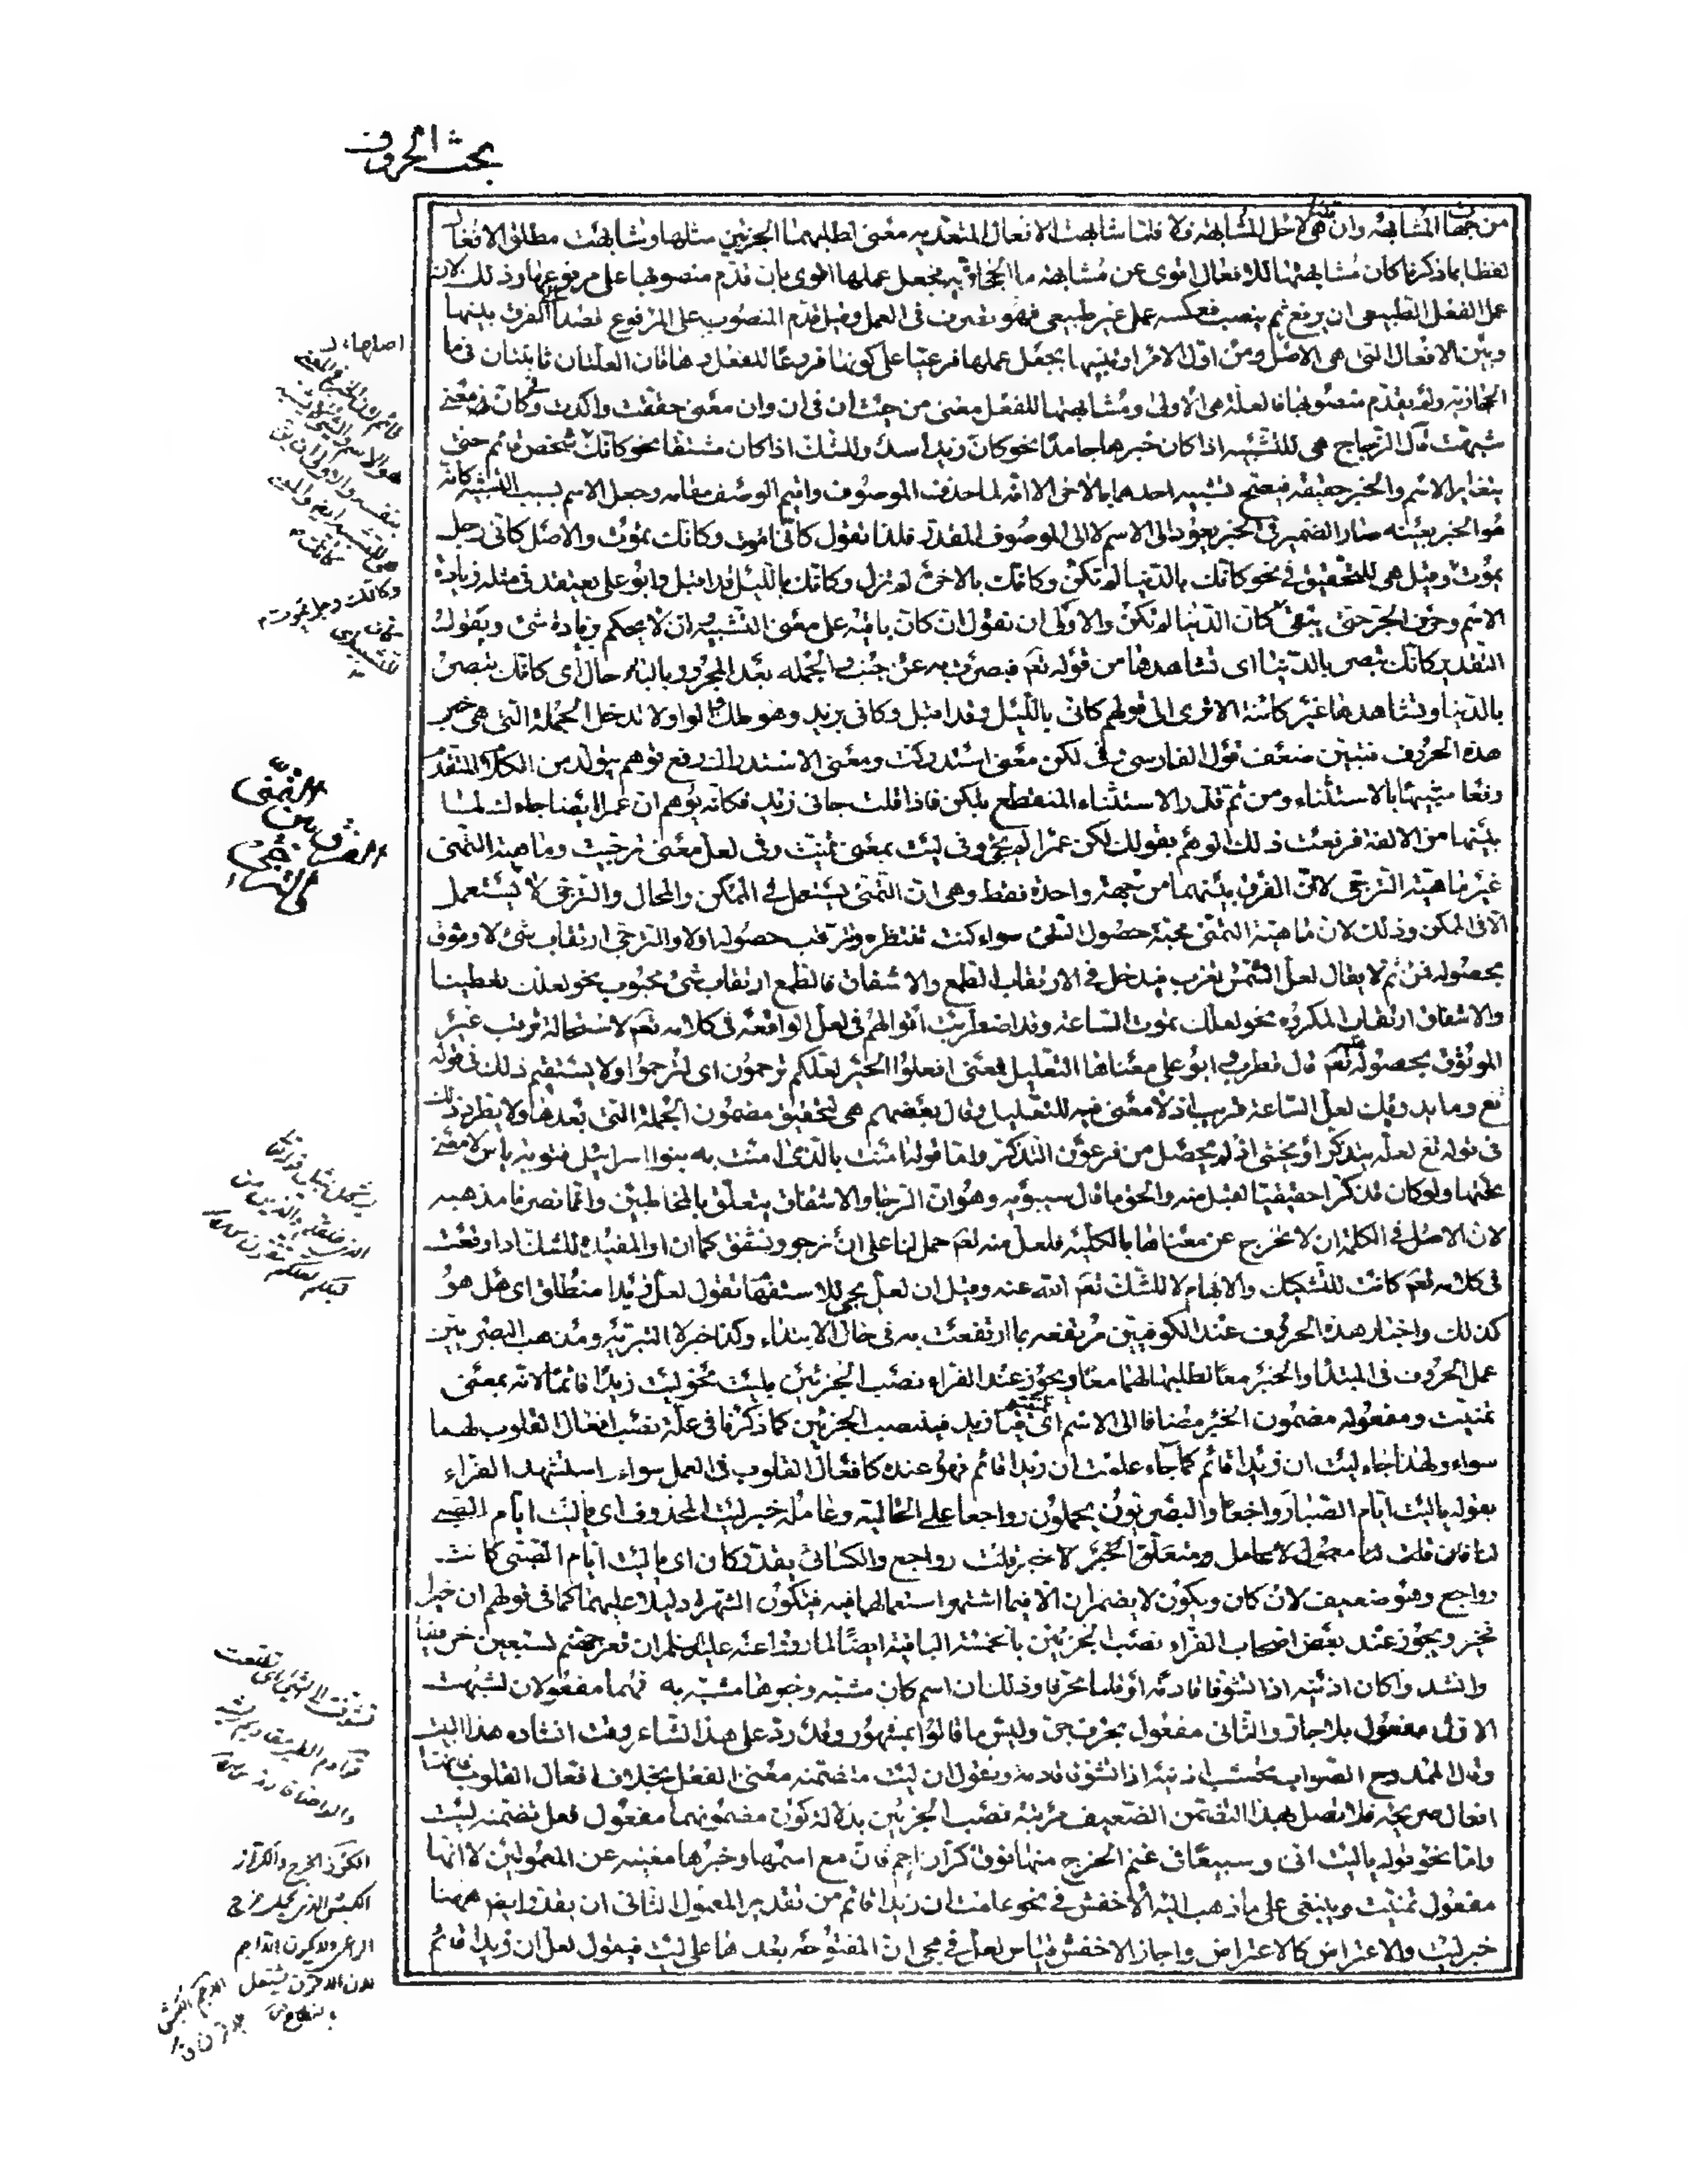 بحث الحروف
من جهة المشابهة وان هي لاجل المشابهة فلما شابهت الافعال المتعدية معنى لطلبهما الجزئين مثلها وشابهت مطلق الافعال
لفظا بما ذكرنا كان مشابهتها للافعال اقوى من مشابهة ما الحجازية فجعل عملها اقوى بان قدم منصوبها على مرفوعها وذلك لان
عمل الفعل الطبيعى ان يرفع ثم ينصب فعكسه عمل غير طبيعى فهو تصرف فى العمل وقيل قدم المنصوب على المرفوع قصدا الى الفرق بينها
وبين الافعال التى هى الاصل ومن اول الامر او تنبيها بجعل عملها فرعيا على كونها فروعا للفعل وهاتان العلتان ثابتتان فى ما
الحجازية ولم يقدم منصوبها فالعلة هى الاولى ومشابهتها للفعل معنى من حيث ان فى ان وان معنى حققت واكدت وفى كان معنى
شبهت قال الزجاج هى للتشبيه اذا كان خبرها جامدا نحو كان زيدا اسد وللشك اذا كان مشتقا نحو كانك قائم
يتغاير الاسم والخبر حقيقة فيصح تشبيه احدهما بالاخر الا انه لما حذف الموصوف واقيم الوصف مقامه وجعل الاسم بسبب التشبيه كانه
هو الخبر بعينه صار الضمير فى الخبر يعود الى الاسم لا الى الموصوف المقدر فلذا تقول كانى اموت وكانك تموت والاصل كانى رجل
يموت وقيل هى للتحقيق فى نحو كانك بالدنيا لم تكن وكانك بالاخرة لم تزل وكانك بالليل قد اقبل وابو على يعتقد فى مثله زيادة
الاسم وحرف الجر حتى يبقى كان الدنيا لم تكن والاولى ان تقول ان كان باقية على معنى التشبيه وان لا يحكم بزيادة شئ ويقول
التقدير كانك تبصر بالدنيا اى تشاهدها من قوله تعم فبصرت به عن جنب والجملة بعد المجرور بالباء حال اى كانك تبصر
بالدنيا وتشاهدها غير كائنة الا ترى الى قولهم كانى بالليل وقد اقبل وكانى بزيد وهو ملك والواو لا تدخل الجملة التى هى خبر
هذه الحروف فتبين ضعف قول الفارسى وفى لكن معنى استدركت ومعنى الاستدراك رفع توهم يتولد من الكلام المتقدم
رفعا شبيها بالاستثناء ومن ثم قدر الاستثناء المنقطع بلكن فاذا قلت جانى زيد فكانه يوهم ان عمرا ايضا جاءك لما
بينهما من الالفة فرفعت ذلك الوهم بقولك لكن عمرا لم يجئ وفى ليت بمعنى تمنيت وفى لعل معنى ترجيت وماهية التمنى
غير ماهية الترجى لا ان الفرق بينهما من جهة واحدة فقط وهى ان التمنى يستعمل فى الممكن والمحال والترجى لا يستعمل
الا فى الممكن وذلك لان ماهية التمنى محبة حصول الشئ سواء كنت تنتظره وترتقب حصوله اولا والترجى ارتقاب شئ لا وثوق
بحصوله فمن ثم لا يقال لعل الشمس تغرب فيدخل فى الارتقاب الطمع والاشفاق فالطمع ارتقاب شئ محبوب نحو لعلك تعطينا
والاشفاق ارتقاب المكروه نحو لعلك تموت الساعة وقد اضطربت اقوالهم فى لعل الواقعة فى كلامه تعم لاستحالة ترقب غير
الموثوق بحصوله عليه تعم قال قطرب وابو على معناها التعليل فمعنى افعلوا الخير لعلكم ترحمون اى لترحموا ولا يستقيم ذلك فى قوله
تع وما يدريك لعل الساعة قريب اذ لا معنى فيه للتعليل وقال بعضهم هى لتحقيق مضمون الجملة التى بعدها ولا يطرد ذلك
فى قوله تع لعله يتذكر او يخشى اذ لم يحصل من فرعون التذكر واما قوله امنت بالذى امنت به بنو اسرائيل فتوبة ياس لا معنى
تحتها ولو كان تذكرا حقيقيا لقبل منه والحق ما قال سيبويه وهو ان الرجاء والاشفاق يتعلق بالمخاطبين وانما نصرنا مذهبه
لان الاصل فى الكلمة ان لا تخرج عن معناها بالكلية فلعل منه تعم حمل لنا على ان نرجو ونشفق كما ان او المفيدة للشك اذا وقعت
فى كلامه تعم كانت للتشكيك والابهام لا للشك تعم الله عنه وقيل ان لعل يجئ للاستفهام تقول لعل زيدا منطلق اى هل هو
كذلك واخبار هذه الحروف عند الكوفيين مرتفعة بما ارتفعت به فى حال الابتداء وكذا خبر لا التبرئة ومذهب البصريين
عمل الحروف فى المبتدا والخبر معا لطلبها لهما معا ويجوز عند الفراء نصب الجزئين بليت نحو ليت زيدا قائما لانه بمعنى
تمنيت ومفعوله مضمون الخبر مضافا الى الاسم اى تمنيت قيام زيد فينصب الجزئين كما ذكرنا فى علة نصب افعال القلوب لهما
سواء ولهذا جاء ليت ان زيدا قائم كما جاء علمت ان زيدا قائم فهو عنده كافعال القلوب فى العمل سواء واستشهد الفراء
بقوله يا ليت ايام الصبا رواجعا والبصريون يحملون رواجعا على الحالية وعامله خبر ليت المحذوف اى يا ليت ايام الصبى
لنا فان قلت لنا معمول لا عامل ومتعلق الخبر لا خبر قلت رواجع والكسائى يقدر كان اى يا ليت ايام الصبى كانت
رواجع وهو ضعيف لان كان ويكون لا يضمران الا فيما اشتهر استعمالهما فيه فيكون الشهرة دليلا عليهما كما فى قولهم ان خيرا
فخير ويجوز عند بعض اصحاب الفراء نصب الجزئين بالخمسة الباقية ايضا لما رووا عنه عليه السلم ان قعر جهنم لسبعين خريفا
وانشدوا كان اذنيه اذا تشوفا قادمة او قلما محرفا وذلك ان اسم كان مشبه وخبرها مشبه به فهما مفعولان لشبهت
الاول مفعول بلا جار والثانى مفعول بحرف جر وليس ما قالوا بمشهور وقد رد على هذا الشاعر وقت انشاده هذا البيت
وقال الممدوح الصواب تحسب اذنيه اذا تشوفا قادمة ويقول ان ليت ما تضمنه معنى الفعل بخلاف افعال القلوب فانها
افعال صريحة فلا تصل بهذا التضمن الضعيف مرتبة نصب الجزئين بدلالة كون مضمونهما مفعول فعل تضمنه ليت
واما نحو قوله يا ليت انى وسبيعا فى غنم الخرج منها فوق كراز اجم فان مع اسمها وخبرها مغنية عن المعمولين لانها
مفعول تمنيت وينبغى على ما ذهب اليه الاخفش فى نحو علمت ان زيدا قائم من تقدير المعمول الثانى ان يقدر ايضا ههنا
خبر ليت والاعتراض كالاعتراض واجاز الاخفش قياس لعل فى مجئ ان المفتوحة بعدها على ليت فيقول لعل ان زيدا قائم
الفرق بين التمنى
والترجى
الكرز الخرج والكراز
الكبش الذى يحمل خرج
الراعى ولا يكون الا اجم
لان الاقرن يشتغل